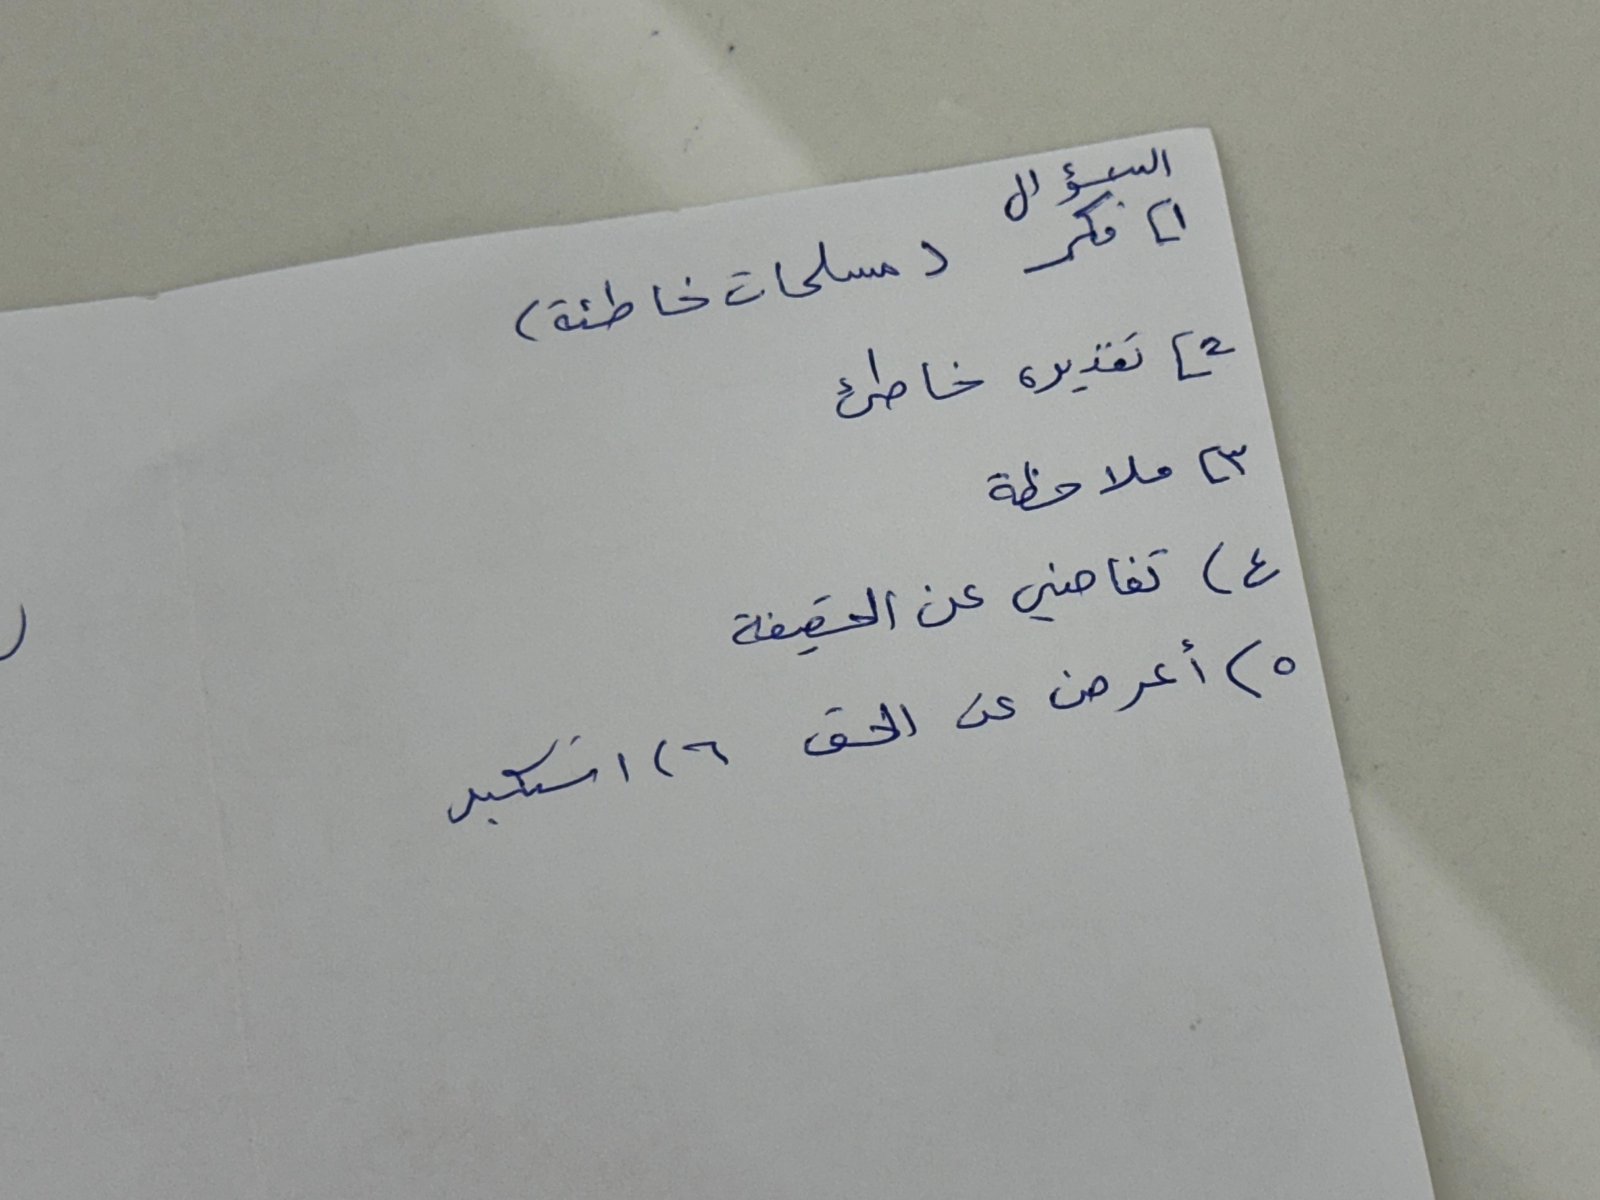 السؤال
١] فكر (مسلمات خاطئة)
2] تقديره خاطئ
٣] ملاحظة
٤) تغاضي عن الحقيقة
٥) أعرض عن الحق ٦) استكبر